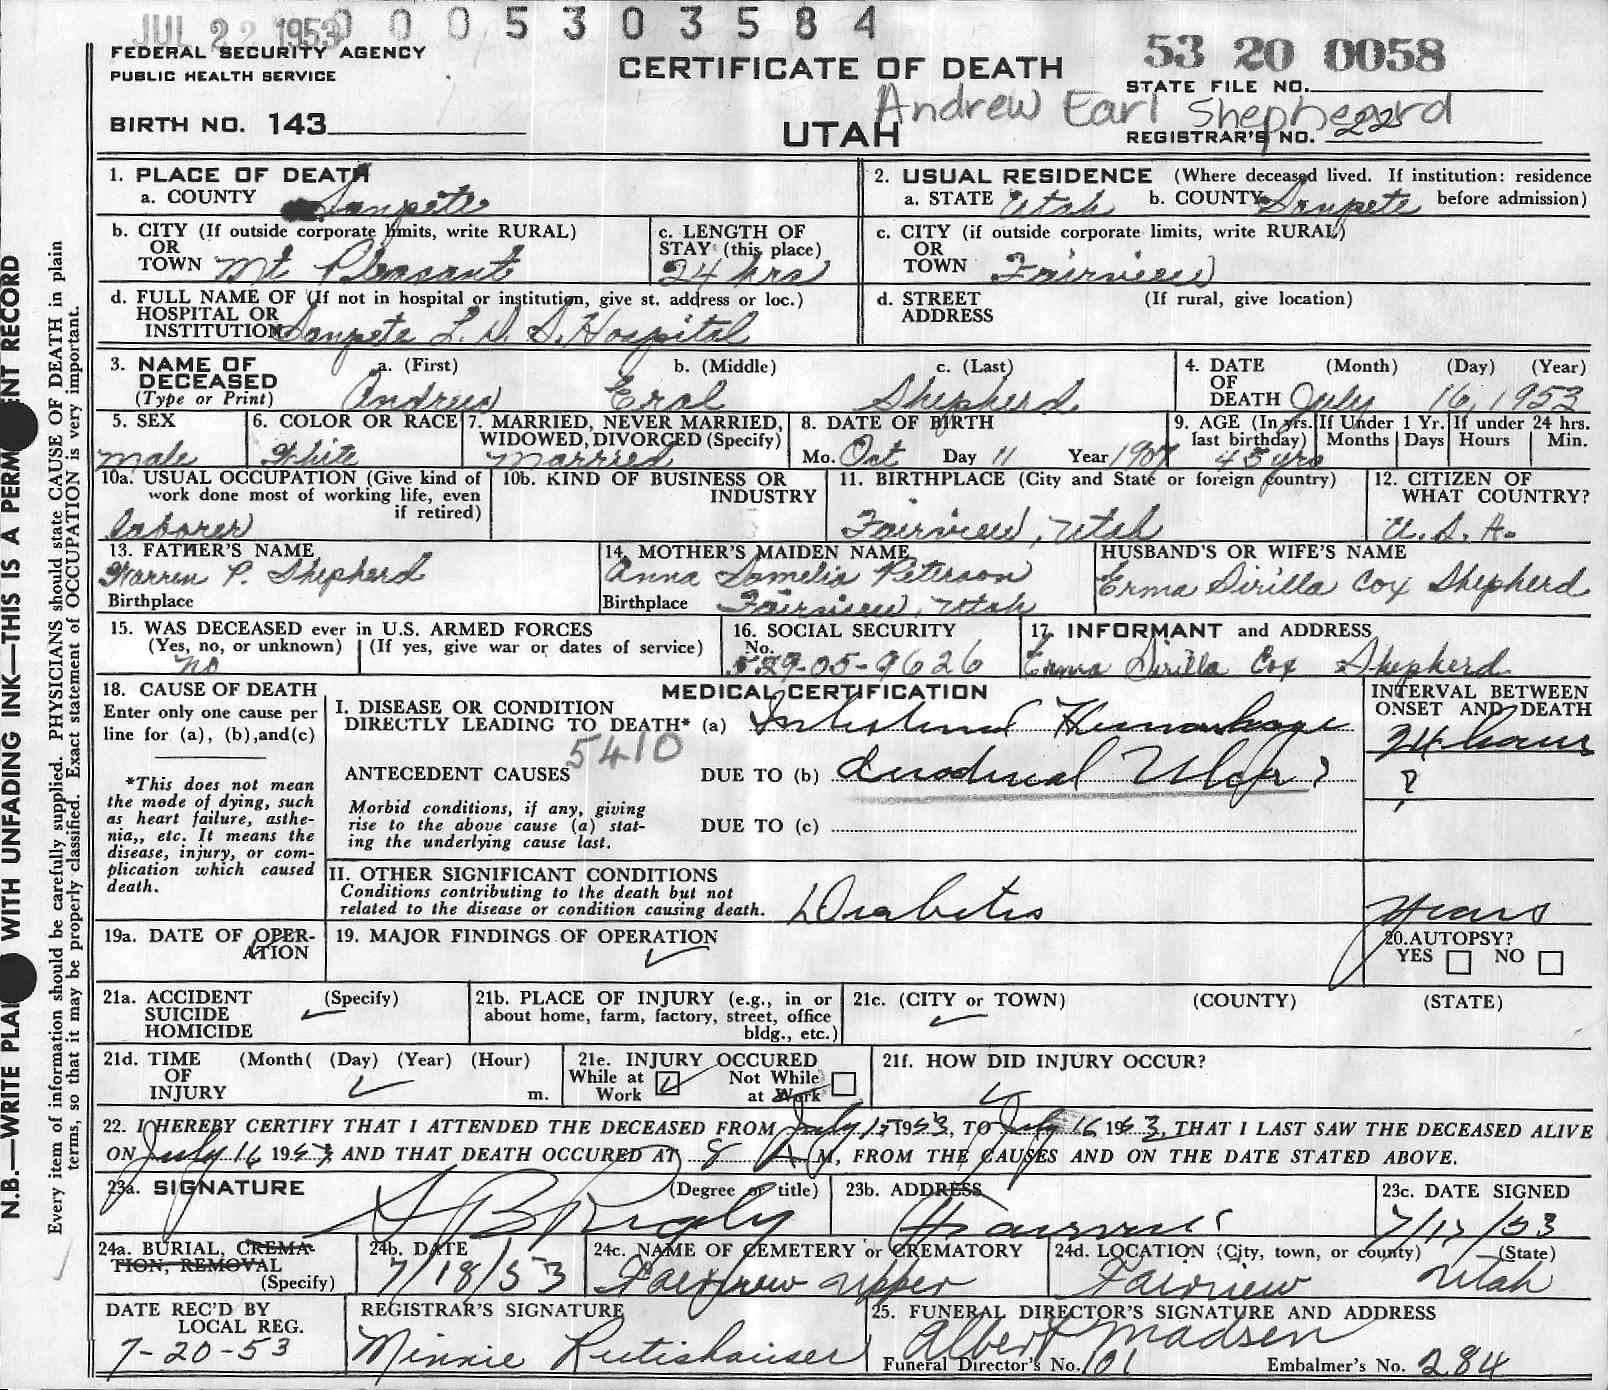 JUL 22 1953 0 0 0 5 3 0 3 5 8 4
FEDERAL SECURITY AGENCY
PUBLIC HEALTH SERVICE
CERTIFICATE OF DEATH
53 20 0058
STATE FILE NO.
Andrew Earl Shepheard
BIRTH NO. 143
UTAH
REGISTRAR'S NO. 22
1. PLACE OF DEATH
a. COUNTY Sanpete
2. USUAL RESIDENCE (Where deceased lived. If institution: residence
a. STATE Utah b. COUNTY Sanpete before admission)
b. CITY (If outside corporate limits, write RURAL)
OR
TOWN Mt Pleasant
c. LENGTH OF
STAY (this place)
24 hrs
c. CITY (if outside corporate limits, write RURAL)
OR
TOWN Fairview
d. FULL NAME OF (If not in hospital or institution, give st. address or loc.)
HOSPITAL OR
INSTITUTION Sanpete L. D. S. Hospital
d. STREET (If rural, give location)
ADDRESS
3. NAME OF DECEASED
(Type or Print)
a. (First) b. (Middle) c. (Last)
Andrew Eral Shepherd
4. DATE (Month) (Day) (Year)
OF
DEATH July 16, 1953
5. SEX
male
6. COLOR OR RACE
White
7. MARRIED, NEVER MARRIED,
WIDOWED, DIVORCED (Specify)
Married
8. DATE OF BIRTH
Mo. Oct Day 11 Year 1907
9. AGE (In yrs. last birthday)
45 yrs
If Under 1 Yr. Months Days
If under 24 hrs. Hours Min.
10a. USUAL OCCUPATION (Give kind of
work done most of working life, even
if retired)
laborer
10b. KIND OF BUSINESS OR
INDUSTRY
11. BIRTHPLACE (City and State or foreign country)
Fairview, Utah
12. CITIZEN OF
WHAT COUNTRY?
U. S. A.
13. FATHER'S NAME
Warren P. Shepherd
Birthplace
14. MOTHER'S MAIDEN NAME
Anna Peterson
Birthplace Fairview, Utah
HUSBAND'S OR WIFE'S NAME
Erma Sirilla Cox Shepherd
15. WAS DECEASED ever in U.S. ARMED FORCES
(Yes, no, or unknown) (If yes, give war or dates of service)
no
16. SOCIAL SECURITY
No.
529-05-9626
17. INFORMANT and ADDRESS
Erma Sirilla Cox Shepherd
18. CAUSE OF DEATH
Enter only one cause per
line for (a), (b), and (c)
*This does not mean
the mode of dying, such
as heart failure, asthe-
nia,, etc. It means the
disease, injury, or com-
plication which caused
death.
MEDICAL CERTIFICATION
I. DISEASE OR CONDITION
DIRECTLY LEADING TO DEATH* (a) Intestinal Hemorrhage
5410
ANTECEDENT CAUSES DUE TO (b) duodenal Ulcer ?
Morbid conditions, if any, giving
rise to the above cause (a) stat-
ing the underlying cause last.
DUE TO (c)
INTERVAL BETWEEN
ONSET AND DEATH
24 hours
?
II. OTHER SIGNIFICANT CONDITIONS
Conditions contributing to the death but not
related to the disease or condition causing death.
Diabetis
Years
19a. DATE OF OPER-
ATION
19. MAJOR FINDINGS OF OPERATION
20. AUTOPSY?
YES NO
21a. ACCIDENT (Specify)
SUICIDE
HOMICIDE
21b. PLACE OF INJURY (e.g., in or
about home, farm, factory, street, office
bldg., etc.)
21c. (CITY or TOWN) (COUNTY) (STATE)
21d. TIME (Month( (Day) (Year) (Hour)
OF
INJURY m.
21e. INJURY OCCURED
While at Work
Not While at Work
21f. HOW DID INJURY OCCUR?
22. I HEREBY CERTIFY THAT I ATTENDED THE DECEASED FROM July 15 1953, TO July 16 1953, THAT I LAST SAW THE DECEASED ALIVE
ON July 16 1953 AND THAT DEATH OCCURED AT 8 A M, FROM THE CAUSES AND ON THE DATE STATED ABOVE.
23a. SIGNATURE (Degree or title)
Rigby
23b. ADDRESS
Fairview
23c. DATE SIGNED
7/17/53
24a. BURIAL, CREMA-
TION, REMOVAL
(Specify)
24b. DATE
7/18/53
24c. NAME OF CEMETERY or CREMATORY
Fairview Upper
24d. LOCATION (City, town, or county) (State)
Fairview Utah
DATE REC'D BY
LOCAL REG.
7-20-53
REGISTRAR'S SIGNATURE
Minnie Rutishauser
25. FUNERAL DIRECTOR'S SIGNATURE AND ADDRESS
Albert Madsen
Funeral Director's No. 101 Embalmer's No. 284
N.B.—WRITE PLAI WITH UNFADING INK—THIS IS A PERM ENT RECORD
Every item of information should be carefully supplied. PHYSICIANS should state CAUSE OF DEATH in plain
terms, so that it may be properly classified. Exact statement of OCCUPATION is very important.